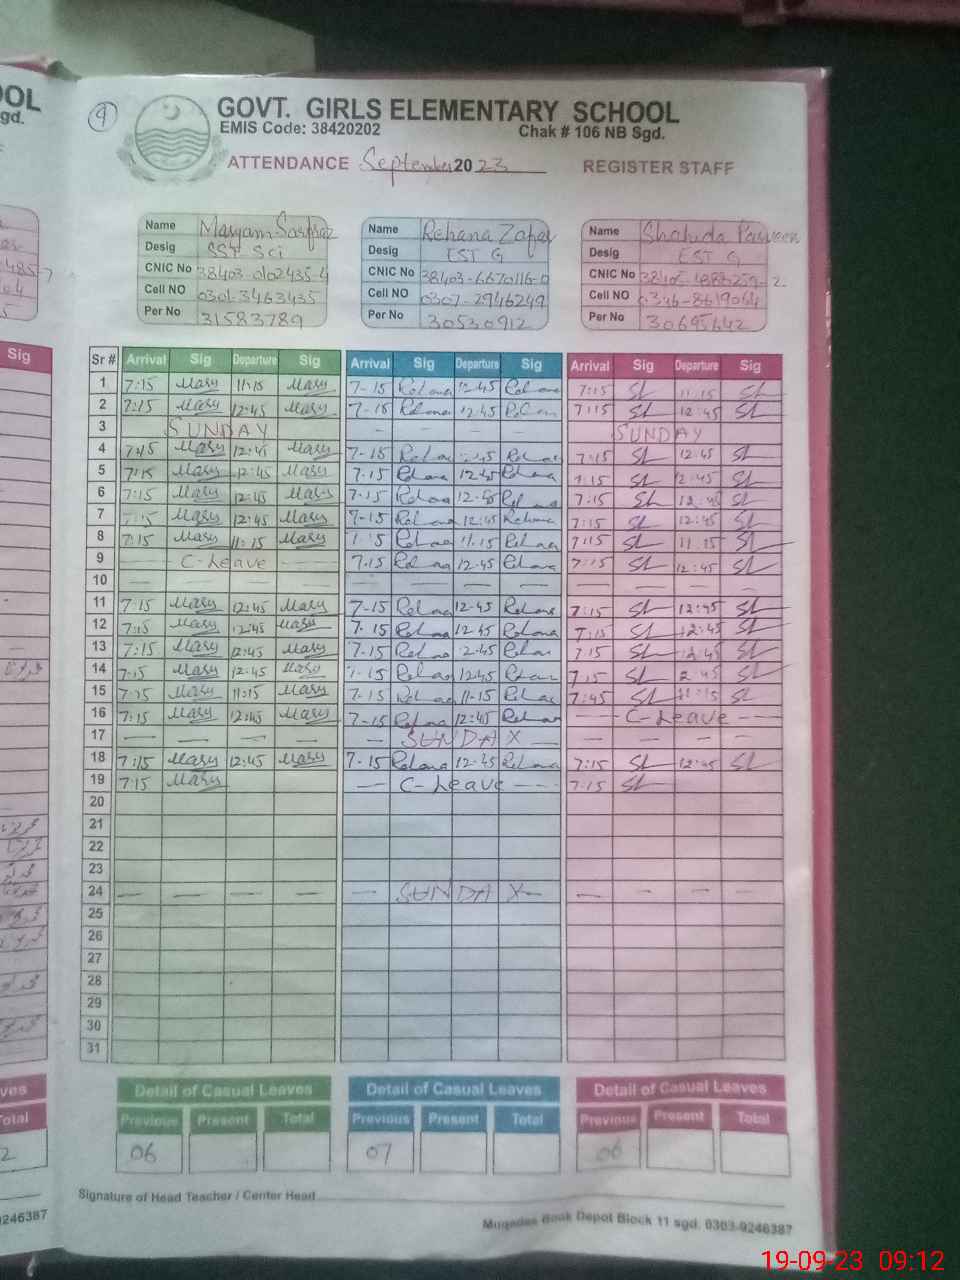 OOL
sgd.
9
GOVT. GIRLS ELEMENTARY SCHOOL
EMIS Code: 38420202 Chak # 106 NB Sgd.
ATTENDANCE September 2023 REGISTER STAFF
Name Maryam Name Rehana Zafar Name Shahida Parveen
Desig SST Sci Desig EST G Desig EST G
CNIC No 38403-0102435-4 CNIC No 38403-6670116-0 CNIC No
Cell NO 0301-3463435 Cell NO 0307-2946249 Cell NO 0346-8619064
Per No 31583789 Per No 30530912 Per No 30695642
Sig Sr # Arrival Sig Departure Sig Arrival Sig Departure Sig Arrival Sig Departure Sig
1 7:15 Mary 11:15 Mary 7-15 Rehana 12:45 Rehana 7:15 SL 11:15 SL
2 7:15 Mary 12:45 Mary 7-15 Rehana 12.45 Rehana 7:15 SL 12:45 SL
3 SUNDAY - - - - SUNDAY
4 Mary 12:45 Mary 7-15 Rehana Rehana 7:15 SL 12:45 SL
5 7:15 Mary 12:45 Mary 7.15 Rehana 12.45 Rehana 7:15 SL 12:45 SL
6 7:15 Mary 12:45 Mary 7.15 Rehana 12-45 Rehana 7:15 SL 12:45 SL
7 7:15 Mary 12:45 Mary 7-15 Rehana 12:45 Rehana 7:15 SL 12:45 SL
8 7:15 Mary 11:15 Mary 7.15 Rehana 11.15 Rehana 7:15 SL 11:15 SL
9 C-Leave 7.15 Rehana 12-45 Rehana 7:15 SL 12:45 SL
10 — — — — — — —
11 7:15 Mary 12:45 Mary 7-15 Rehana 12-45 Rehana 7:15 SL 12:45 SL
12 7:15 Mary 12:45 Mary 7.15 Rehana 12.45 Rehana 7:15 SL 12:45 SL
13 7:15 Mary 12:45 Mary 7.15 Rehana 2.45 Rehana 7:15 SL 12:45 SL
14 7:15 Mary 12:45 Mary 7.15 Rehana 12.45 Rehana 7:15 SL 2:45 SL
15 7:15 Mary 11:15 Mary 7.15 Rehana 11-15 Rehana 7:45 SL 11:15 SL
16 7:15 Mary 12:45 Mary 7-15 Rehana 12:45 Rehana C-Leave
17 — — — — — SUNDAY — — — — —
18 7:15 Mary 12:45 Mary 7-15 Rehana 12.45 Rehana 7:15 SL 12:45 SL
19 7:15 Mary — C-Leave --- 7:15 SL
20
21
22
23
24 — — — — — SUNDAY — — — — —
25
26
27
28
29
30
31
ves Detail of Casual Leaves Detail of Casual Leaves Detail of Casual Leaves
Total Previous Present Total Previous Present Total Previous Present Total
2 06 07 06
Signature of Head Teacher / Center Head
9246387 Muqadas Book Depot Block 11 sgd. 0303-9246387
19-09-23 09:12